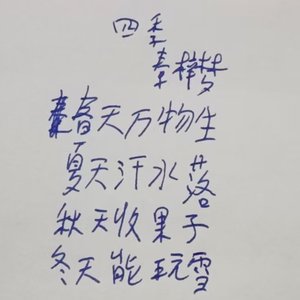 四季
春天万物生
夏天汗水落
秋天收果子
冬天能玩雪